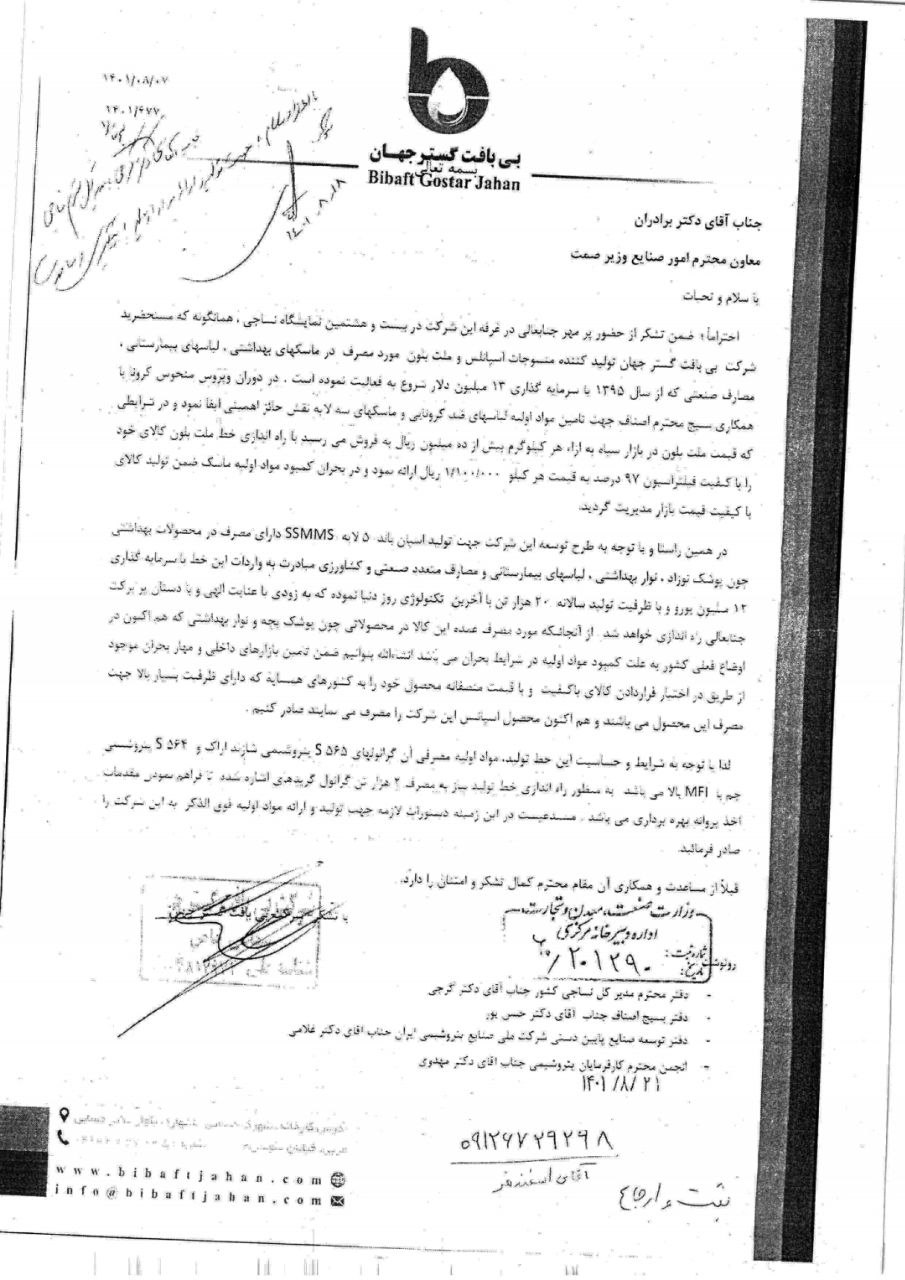 ۱۴۰۱/۰۸/۰۷
۱۴۰۱/۶۷۷
بی بافت گستر جهان
بسمه تعالی
Bibaft Gostar Jahan
۱۴۰۱-۸-۱۸
جناب آقای دکتر برادران
معاون محترم امور صنایع وزیر صمت
با سلام و تحیات
احتراماً ؛ ضمن تشکر از حضور پر مهر جنابعالی در غرفه این شرکت در بیست و هشتمین نمایشگاه نساجی ، همانگونه که مستحضرید
شرکت بی بافت گستر جهان تولید کننده منسوجات اسپانلس و ملت بلون مورد مصرف در ماسکهای بهداشتی ، لباسهای بیمارستانی ،
مصارف صنعتی که از سال ۱۳۹۵ با سرمایه گذاری ۱۳ میلیون دلار شروع به فعالیت نموده است ، در دوران ویروس منحوس کرونا با
همکاری بسیج محترم اصناف جهت تامین مواد اولیه لباسهای ضد کرونایی و ماسکهای سه لایه نقش حائز اهمیتی ایفا نمود و در شرایطی
که قیمت ملت بلون در بازار سیاه به ازاء هر کیلوگرم بیش از ده میلیون ریال به فروش می رسید با راه اندازی خط ملت بلون کالای خود
را با کیفیت فیلتراسیون ۹۷ درصد به قیمت هر کیلو ۱/۱۰۰/۰۰۰ ریال ارائه نمود و در بحران کمبود مواد اولیه ماسک ضمن تولید کالای
با کیفیت قیمت بازار مدیریت گردید.
در همین راستا و با توجه به طرح توسعه این شرکت جهت تولید اسپان باند ۵ لایه SSMMS دارای مصرف در محصولات بهداشتی
چون پوشک نوزاد ، نوار بهداشتی ، لباسهای بیمارستانی و مصارف متعدد صنعتی و کشاورزی مبادرت به واردات این خط با سرمایه گذاری
۱۲ میلیون یورو و با ظرفیت تولید سالانه ۲۰ هزار تن با آخرین تکنولوژی روز دنیا نموده که به زودی با عنایت الهی و با دستان پر برکت
جنابعالی راه اندازی خواهد شد . از آنجائیکه مورد مصرف عمده این کالا در محصولاتی چون پوشک بچه و نوار بهداشتی که هم اکنون در
اوضاع فعلی کشور به علت کمبود مواد اولیه در شرایط بحران می باشد انشاءالله بتوانیم ضمن تامین بازارهای داخلی و مهار بحران موجود
از طریق در اختیار قراردادن کالای باکیفیت و با قیمت منصفانه محصول خود را به کشورهای همسایه که دارای ظرفیت بسیار بالا جهت
مصرف این محصول می باشند و هم اکنون محصول اسپانس این شرکت را مصرف می نمایند صادر کنیم .
لذا با توجه به شرایط و حساسیت این خط تولید، مواد اولیه مصرفی آن گرانولهای S ۵۶۵ پتروشیمی شازند اراک و S ۵۶۴ پتروشیمی
جم با MFI بالا می باشد به منظور راه اندازی خط تولید نیاز به مصرف ۲ هزار تن گرانول گریدهای اشاره شده تا فراهم نمودن مقدمات
اخذ پروانه بهره برداری می باشد . مستدعیست در این زمینه دستورات لازمه جهت تولید و ارائه مواد اولیه فوق الذکر به این شرکت را
صادر فرمائید.
قبلاً از مساعدت و همکاری آن مقام محترم کمال تشکر و امتنان را دارد.
با تشکر
وزارت صنعت، معدن و تجارت
اداره دبیرخانه مرکزی
شماره ثبت : ۲۰۱۲۹۰
تاریخ :
رونوشت
- دفتر محترم مدیر کل نساجی کشور جناب آقای دکتر گرجی
- دفتر بسیج اصناف جناب آقای دکتر حسن پور
- دفتر توسعه صنایع پایین دستی شرکت ملی صنایع پتروشیمی ایران جناب اقای دکتر غلامی
- انجمن محترم کارفرمایان پتروشیمی جناب اقای دکتر مهدوی
۱۴۰۱/۸/۲۱
۰۹۱۲۶۷۲۹۲۹۸
آقای اسفندفر
ثبت و ارجاع
www.bibaftjahan.com
info@bibaftjahan.com